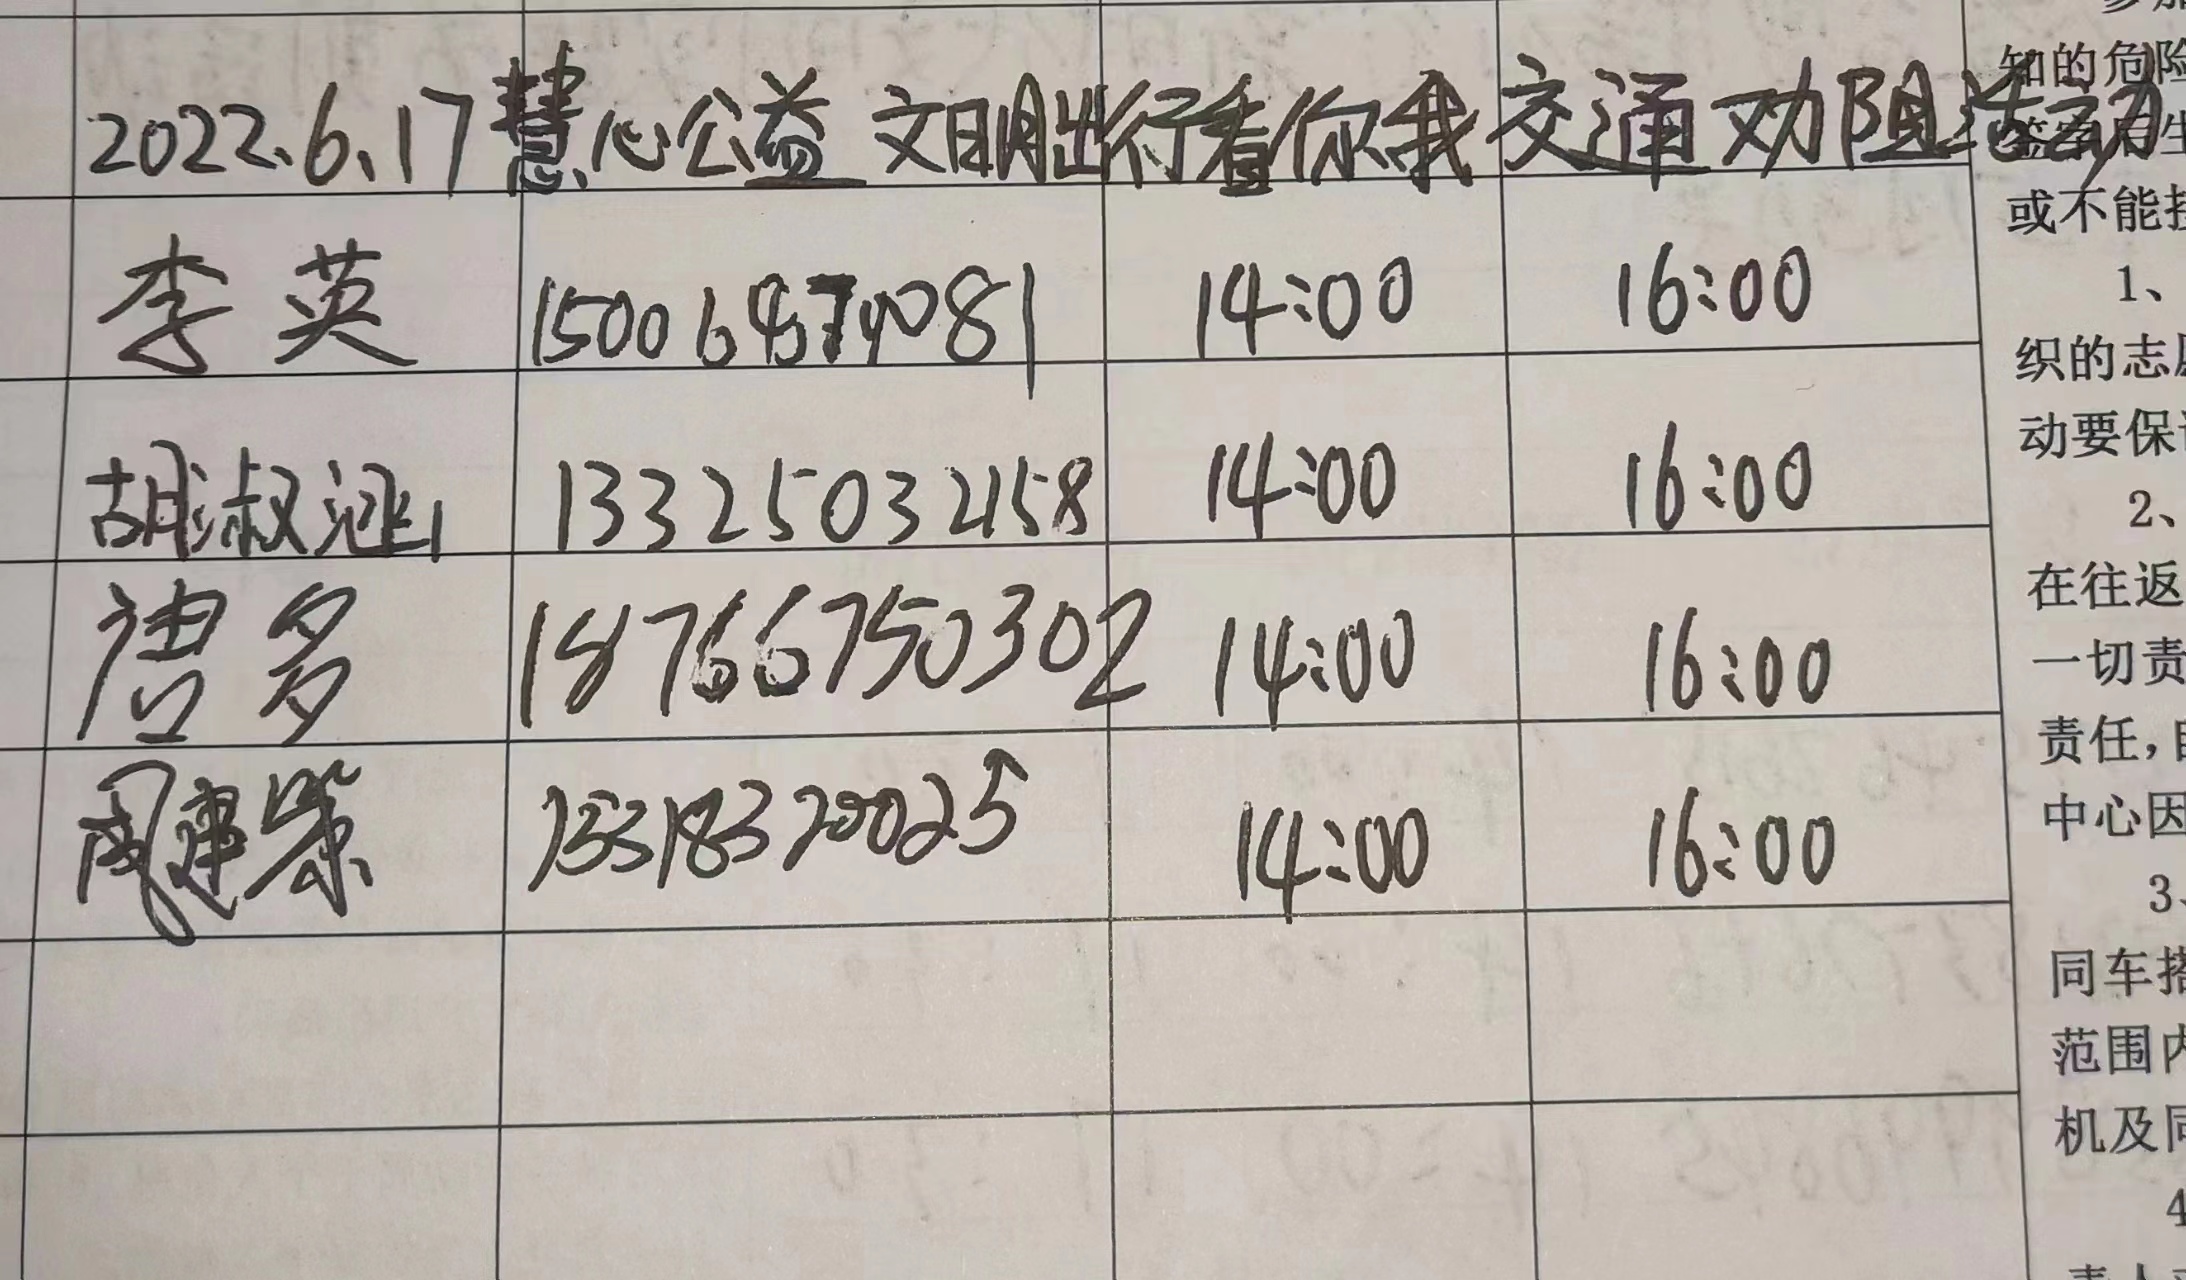 2022.6.17慧心公益 文明出行看你我 交通劝阻活动
李英 14:00 16:00
胡淑涵 13325032158 14:00 16:00
唐多 18766750302 14:00 16:00
周建荣 15318320025 14:00 16:00
知的危险
或不能
1、
织的志愿
动要保证
2、
在往返
一切责
责任,自
中心因
3、
同车搭
范围内
机及同
4